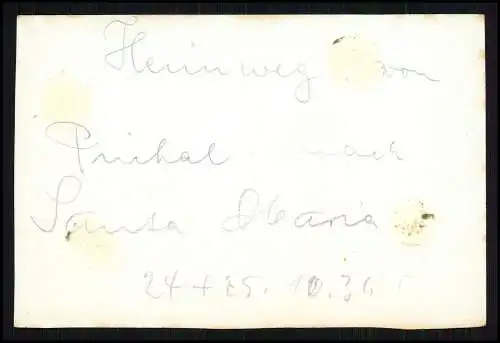 Heimweg von
Pinhal nach
Santa Maria
24 + 25. 12. 31